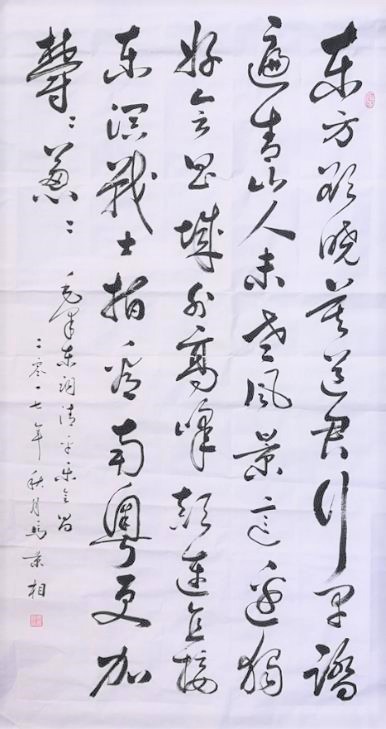 东方欲晓莫道君行早踏
遍青山人未老风景这边独
好会昌城外高峰颠连直接
东溟战士指看南粤更加
鬱々葱々
毛泽东词清平乐会昌
二零一七年秋月马景相